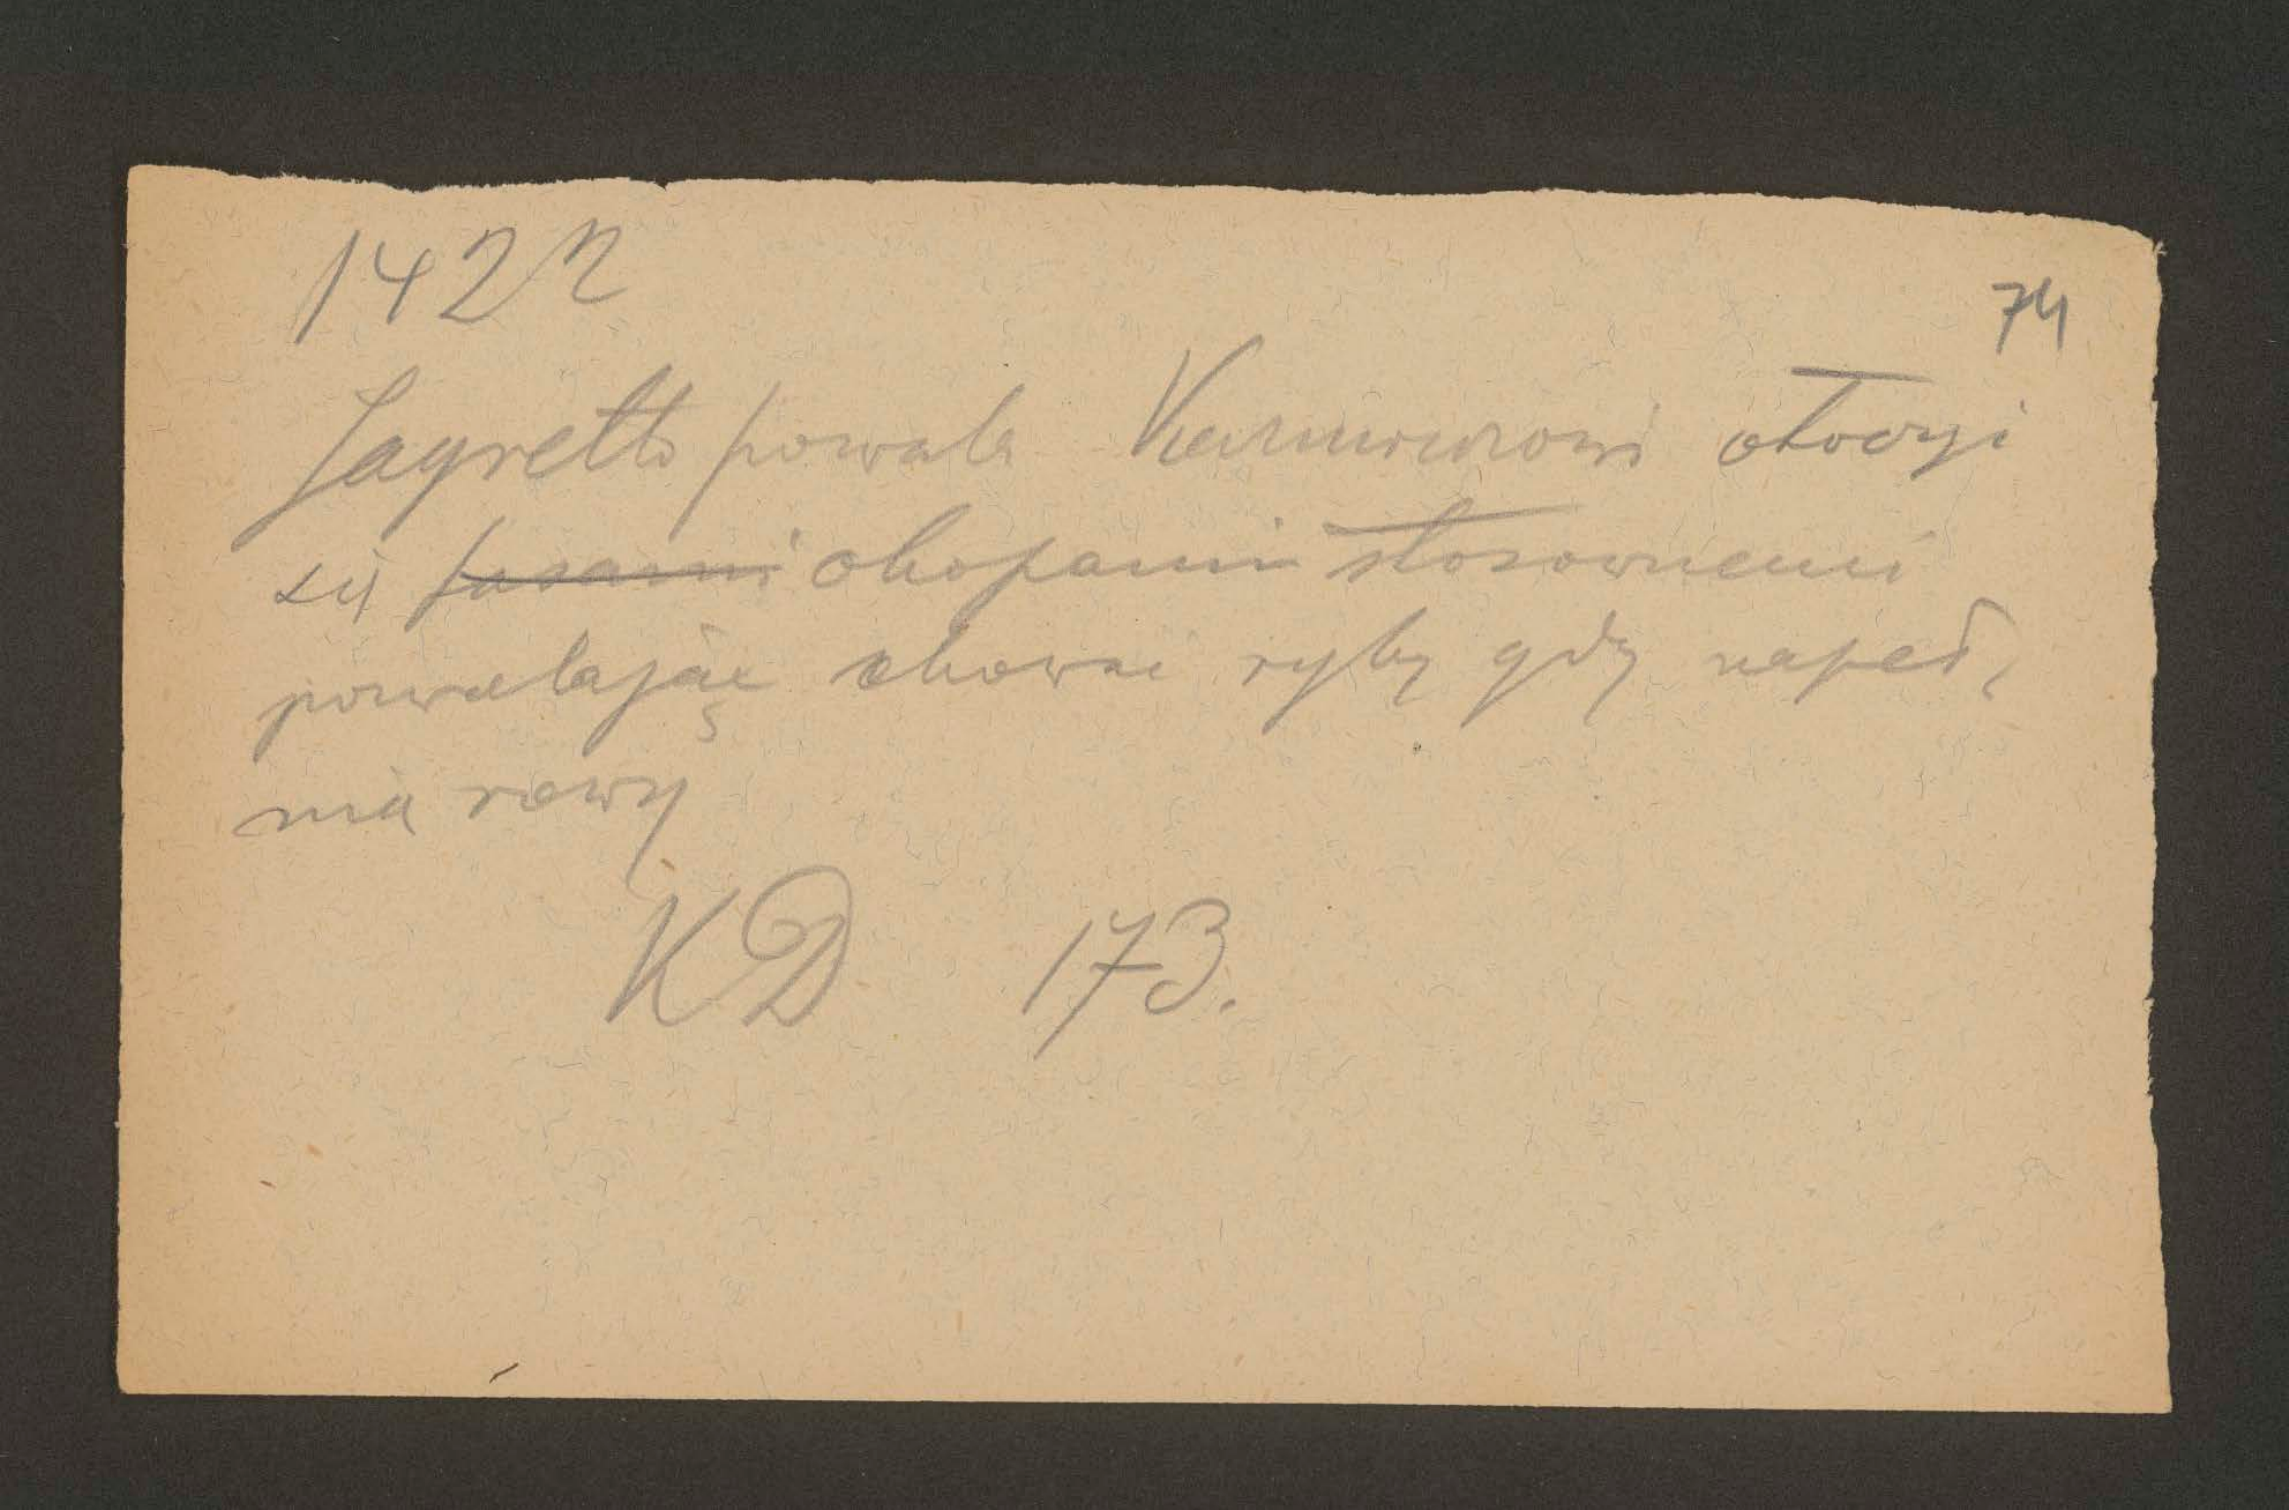 1422
74
Jagiełło pozwala Kazimierzowi otoczyć
się fosami okopami stosownemi
pozwalając chować ryby gdy napeł,
nią rowy
KD 173.